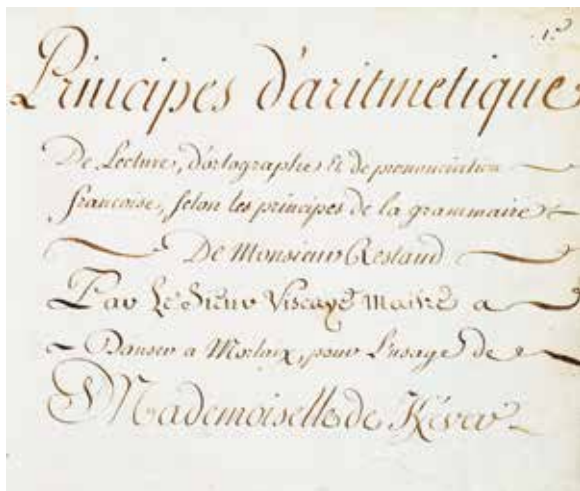 1.er
Principes d'aritmetique
De Lecture, d'ortographe, Et de prononciation
francoise, selon les principes de la grammaire
De Monsieur Restaud
Par Le Sieur Viscaye Maitre a
Danser a Morlaix, pour L'usage de
Mademoiselle de Kéver